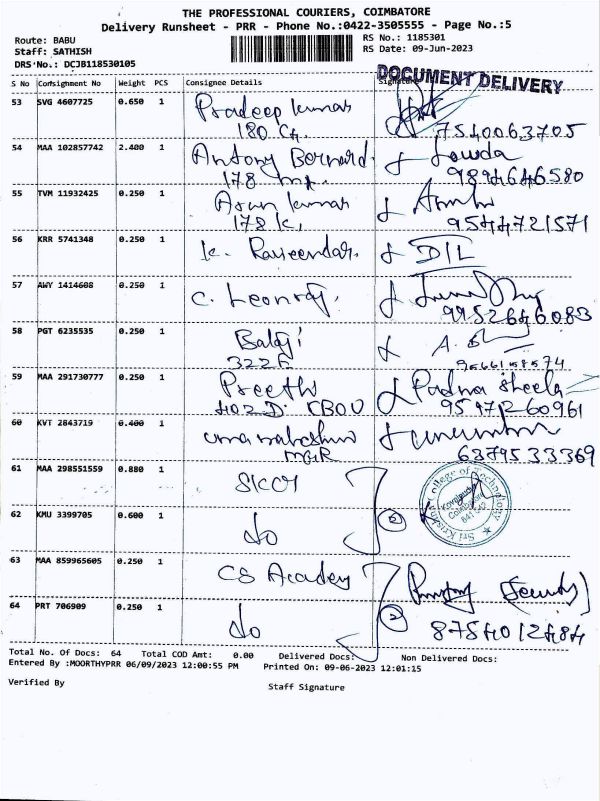 THE PROFESSIONAL COURIERS, COIMBATORE
Delivery Runsheet - PRR - Phone No.:0422-3505555 - Page No.:5
Route: BABU
Staff: SATHISH
DRS No.: DCJB118530105
RS No.: 1185301
RS Date: 09-Jun-2023
DOCUMENT DELIVERY
S No Consignment No Weight PCS Consignee Details Signature
53 SVG 4607725 0.650 1 Pradeep kumar
180 G. 7540063705
54 MAA 102857742 2.400 1 Antony Bernard.
178 9894646580
55 TVM 11932425 0.250 1 Arun kumar
178 K, 9544721571
56 KRR 5741348 0.250 1 K. Raveendar.
57 AWY 1414608 0.250 1 C. Leonraj.
9952646083
58 PGT 6235535 0.250 1 Balaji
322F 9566158574
59 MAA 291730777 0.250 1 Preethi Padma Sheela
402 D 9597260961
60 KVT 2843719 0.400 1
MGR 6379533369
61 MAA 298551559 0.880 1 SKCT
62 KMU 3399705 0.600 1 do
Sri Krishna College of Technology
Kovaipudur
Coimbatore
641 042
63 MAA 859965605 0.250 1 CS Academy (Security)
64 PRT 706909 0.250 1 do 2 8754012484
Total No. Of Docs: 64 Total COD Amt: 0.00 Delivered Docs: Non Delivered Docs:
Entered By :MOORTHYPRR 06/09/2023 12:00:55 PM Printed On: 09-06-2023 12:01:15
Verified By Staff Signature